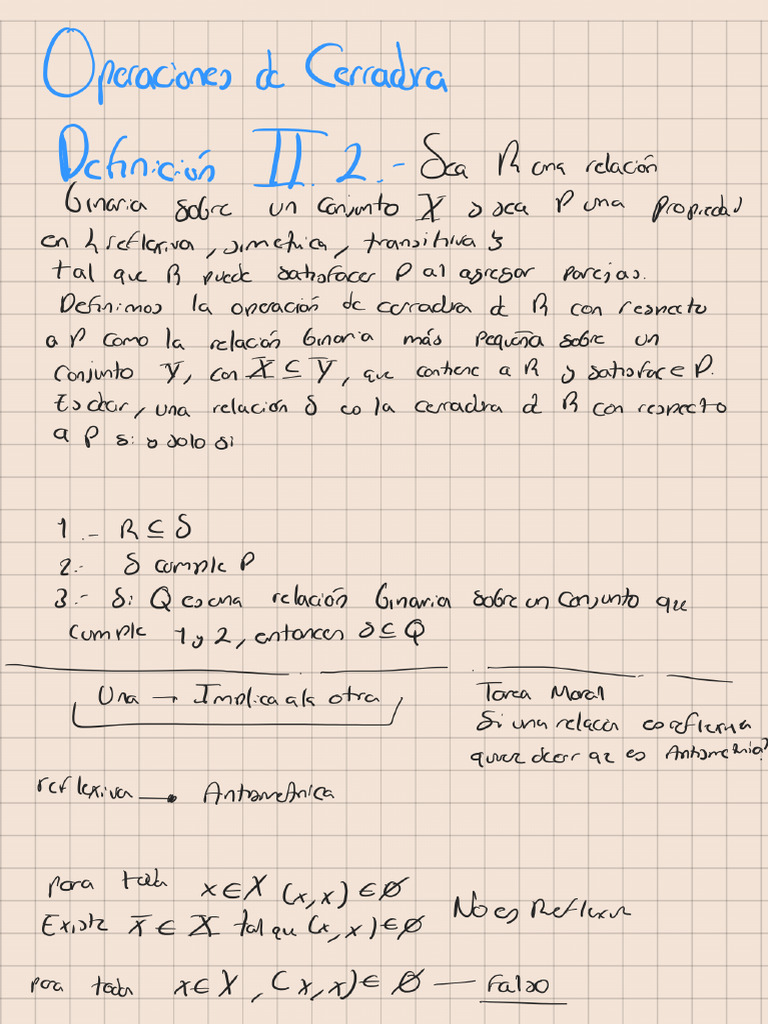 Operaciones de Cerradura
Definición II.2.- Sea R una relación
binaria sobre un conjunto X y sea P una propiedad
en {reflexiva, simetrica, transitiva}
tal que R puede satisfacer P al agregar parejas.
Definimos la operación de cerradura d R con respecto
a P como la relación binaria más pequeña sobre un
conjunto Y, con X ⊆ Y, que contiene a R y satisface P.
Es decir, una relación S es la cerradura d R con respecto
a P si y solo si
1.- R ⊆ S
2.- S cumple P
3.- Si Q es una relación binaria sobre un conjunto que
cumple 1 y 2, entonces S ⊆ Q
Una → Implica a la otra
Tarea Moral
Si una relación es reflexiva
quiere decir qe es Antisimetrica?
reflexiva → Antisimetrica
para toda x ∈ X (x,x) ∈ ∅
Existe x ∈ X tal que (x,x) ∈ ∅
No es Reflexiva
para toda x ∈ X, (x,x) ∈ ∅ — Falso